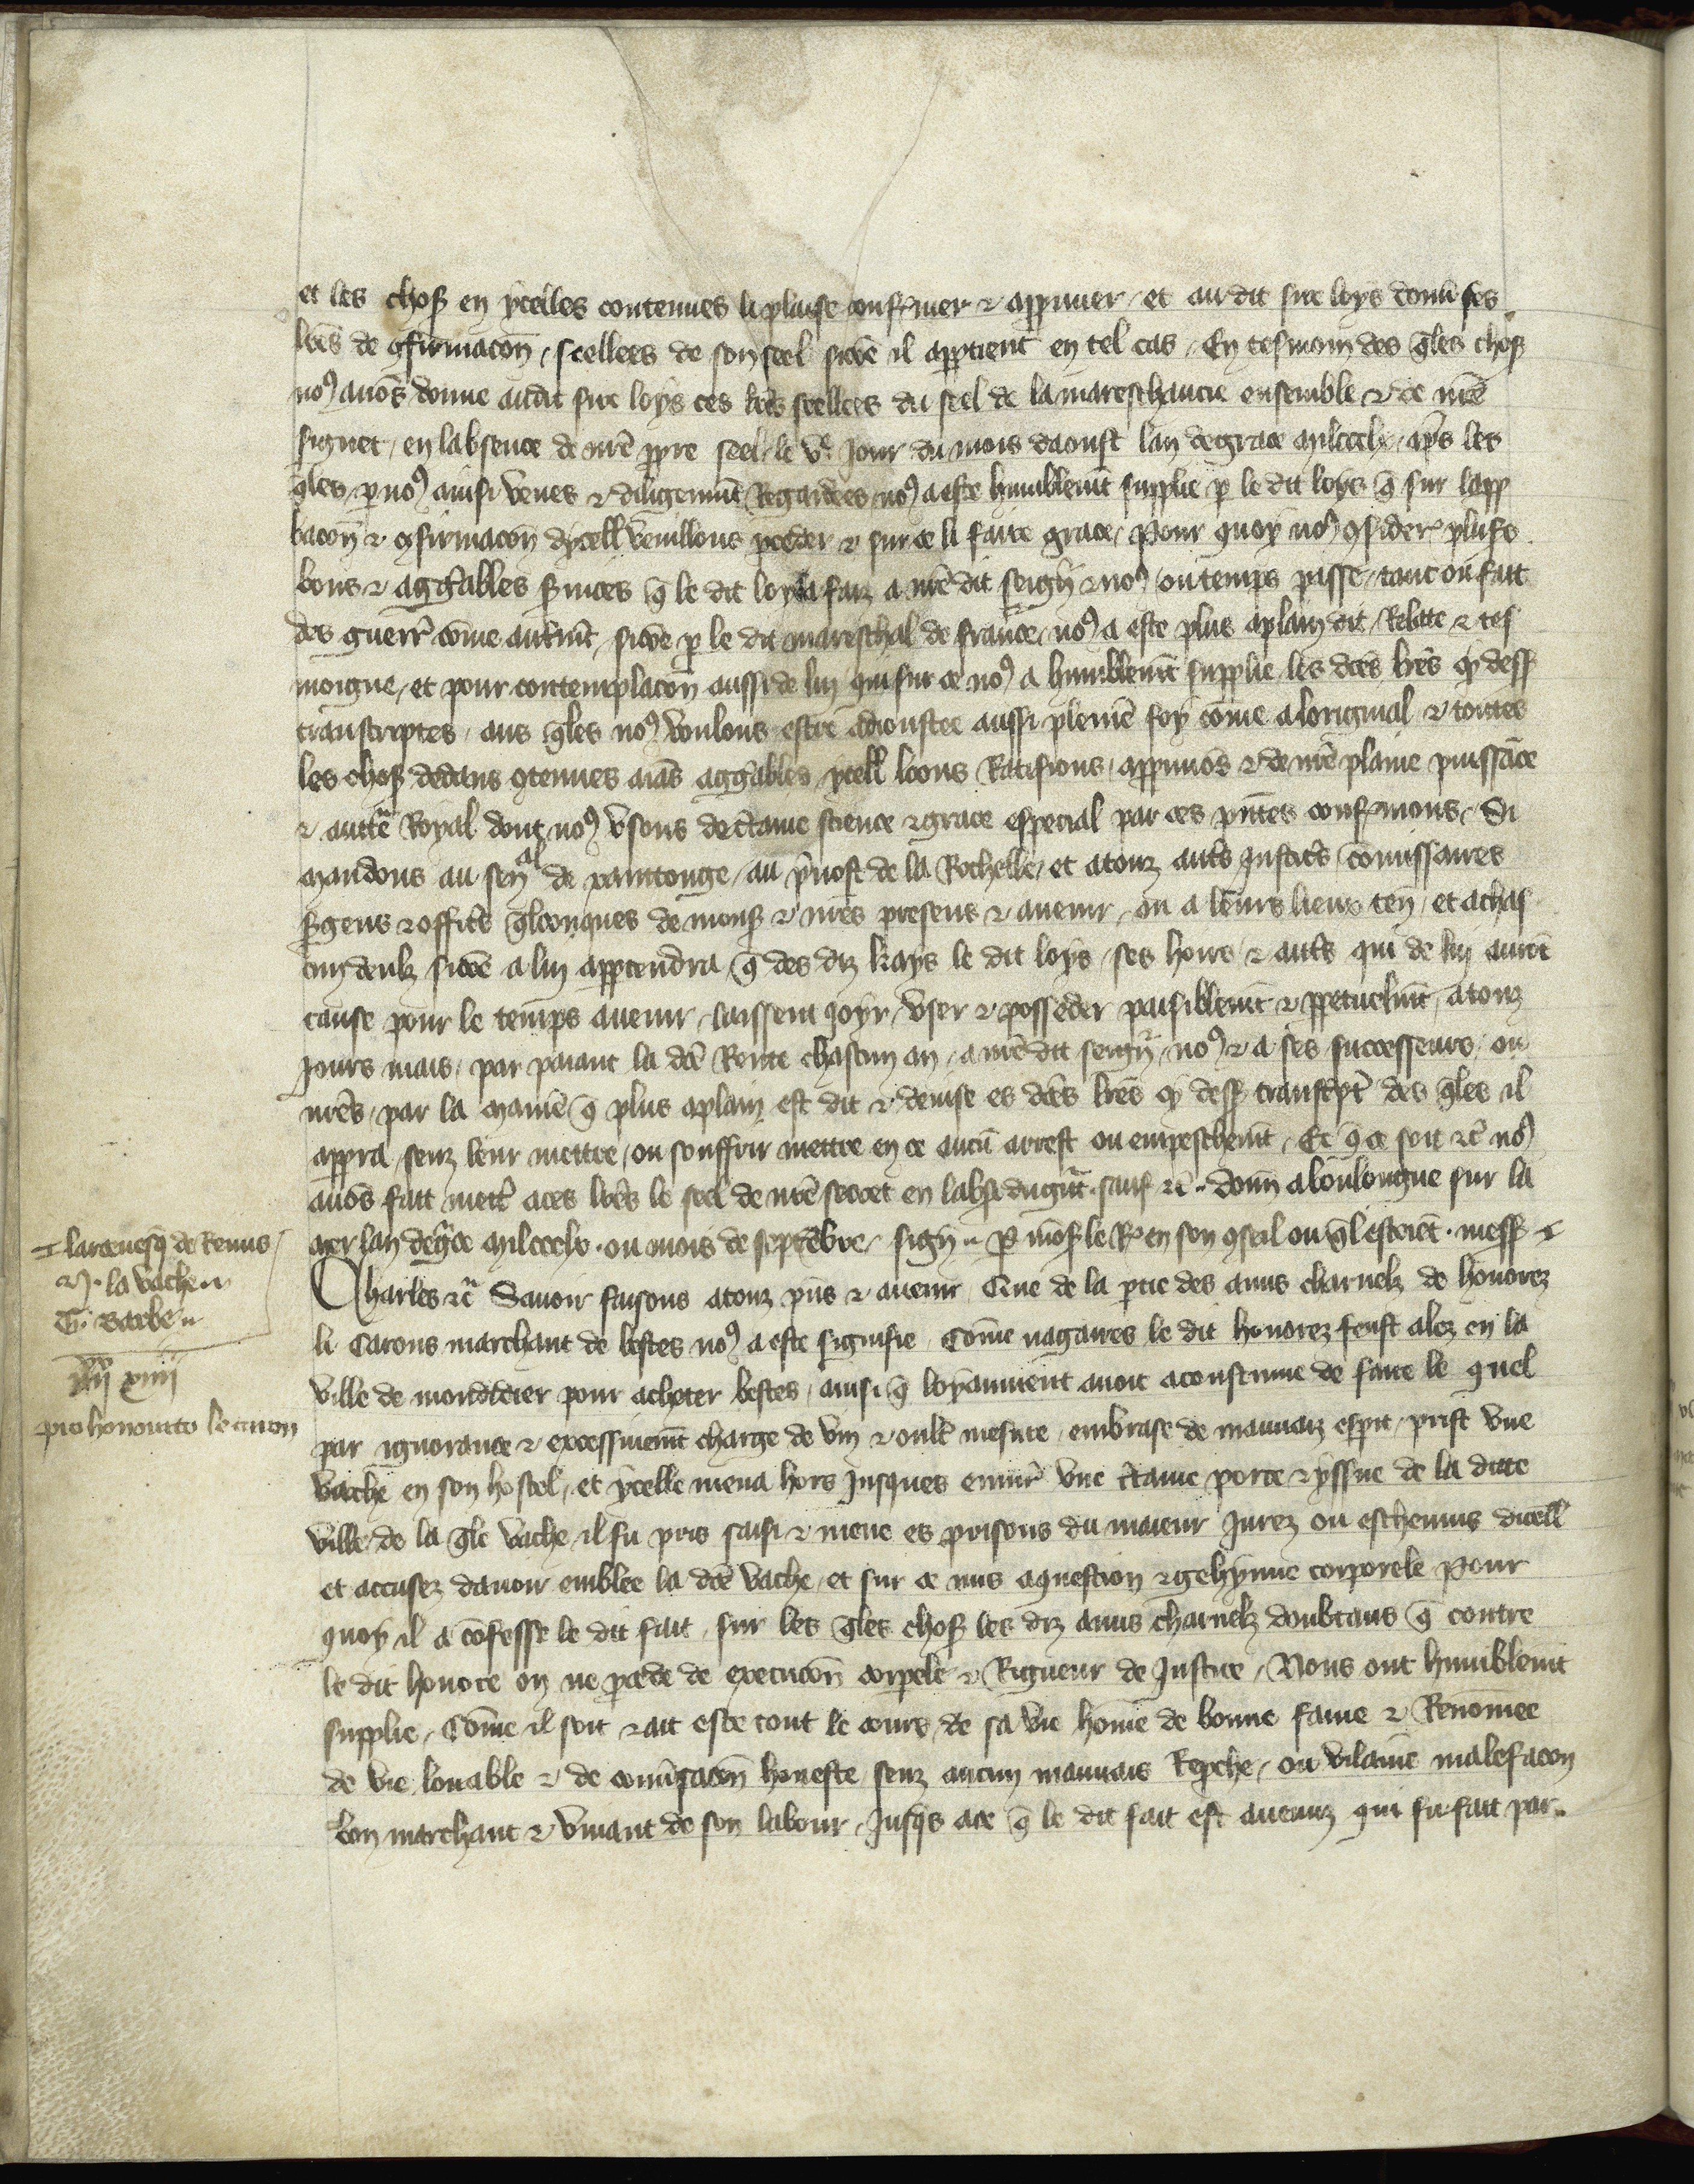 et les choses en ycelles contenues li plaise confermer & appruuer et au dit sire loys donner ses
lres de gfirmacon scellees de son seel sicōe il apptient en tel cas En tesmoin des q̄les choses
noꝰ auōs donne audit sire loys ces lres scellees du seel de la mareschaucie ensemble & de nr̄e
signet en labsence de nr̄e ppre seel le ve jour du mois daoust lan de grace mil ccc lx apr̄s les
q̄les p noꝰ ainsi veues & diligemmt Regardees noꝰ a este humblemt supplie p le dit loys q̄ sur lapp
bacon & gfirmacon dycell veuillons pceder & sur ce li faire grace Pour quoy noꝰ gsider plusrs
bons & aggr̄ables s̄uices q̄ le dit loys a faiz a nr̄e dit seignr & noꝰ ou temps passe tant ou fait
des guerr̄ cōme autremt sicōe p le dit mareschal de france noꝰ a este plus aplain dit Relate & tes
moigne et pour contemplacōn aussi de lui qui sur ce noꝰ a humblemt supplie les dc̄es lr̄es cy dess
transcriptes aus q̄les noꝰ voulons estre adioustee aussi plenie foy cōme a loriginal & toutes
les choses dedans gtenues aiās aggr̄ables ycell loons Ratifions appruuōs & de nr̄e plaine puissāce
& autt̄e Royal dont noꝰ vsons de c̄taine science & grace especial par ces pn̄tes confermons Si
mandons au senal de xanttonge au p̄uost de la Rochelle et a touz autrs justiciers cōmissaires
s̄gens & officrs q̄lconques de mons & nr̄es presens & auenir ou a leurs lieux ten et a chas
cun deulz sicōe a lui apptendra q̄ des diz kays le dit loys ses hoirs & autrs qui de lui aurōt
cause pour le temps auenir laissent joyr vser & posseder paisiblemt & ppetuelmt a touz
jours mais par paiant la dc̄e Rente chascun an a nr̄e dit seignr noꝰ & a ses successeurs ou
nr̄es par la manie q̄ plus aplain est dit & deuise es dc̄es lr̄es cy dess transcpt̄ des q̄les il
appra senz leur mettre ou souffrir mettre en ce aucū arrest ou empeschemt Et q̄ ce soit &c̄ noꝰ
auōs fait mettr̄ a ces lr̄es le seel de nr̄e secret en labse du grāt sauf &c̄ donn a bouloungne sur la
mer lan de gr̄ce mil ccc lx ou mois de septēbre sign p mōs le R en son gseil ou q̄l estoiēt mess
larceuesq̄ de Reims
M. la vache
G. Barbe
Charles &c̄ Sauoir faisons a touz pn̄s & auenir Que de la ptie des amis charnelz de honorez
li Carons marchant de bestes noꝰ a este signifie Cōme nagaires le dit honorez feust alez en la
iiiixx xiiii
ville de mondidier pour acheter bestes ainsi q̄ loyaument auoit acoustume de faire le quel
pro honorato le caron
par ignorance & excessiuemt charge de vin & oultr̄ mesure embrase de mauuaiz espit prist vne
vache en son hostel et ycelle mena hors jusques enuir̄ vne c̄taine porte & yssue de la dicte
ville de la q̄le vache il fu pris saisi & mene es prisons du maieur jurez ou escheuins dicell
et accusez dauoir emblee la dc̄e vache et sur ce mis a question & gehynne corporele Pour
quoy il a cōfesse le dit fait sur les q̄les choses les diz amis charnelz doubtans q̄ contre
le dit honore on ne pcede de execucōn corpele & Rigueur de justice Nous ont humblemt
supplie Cōme il soit & ait este tout le cours de sa vie hōme de bonne fame & Renōmee
de vie louable & de conūsacōn honeste senz aucun mauuais Repche ou vilaine malefacon
bon marchant & viuant de son labour jusqs a ce q̄ le dit fait est auenuz qui fu fait par